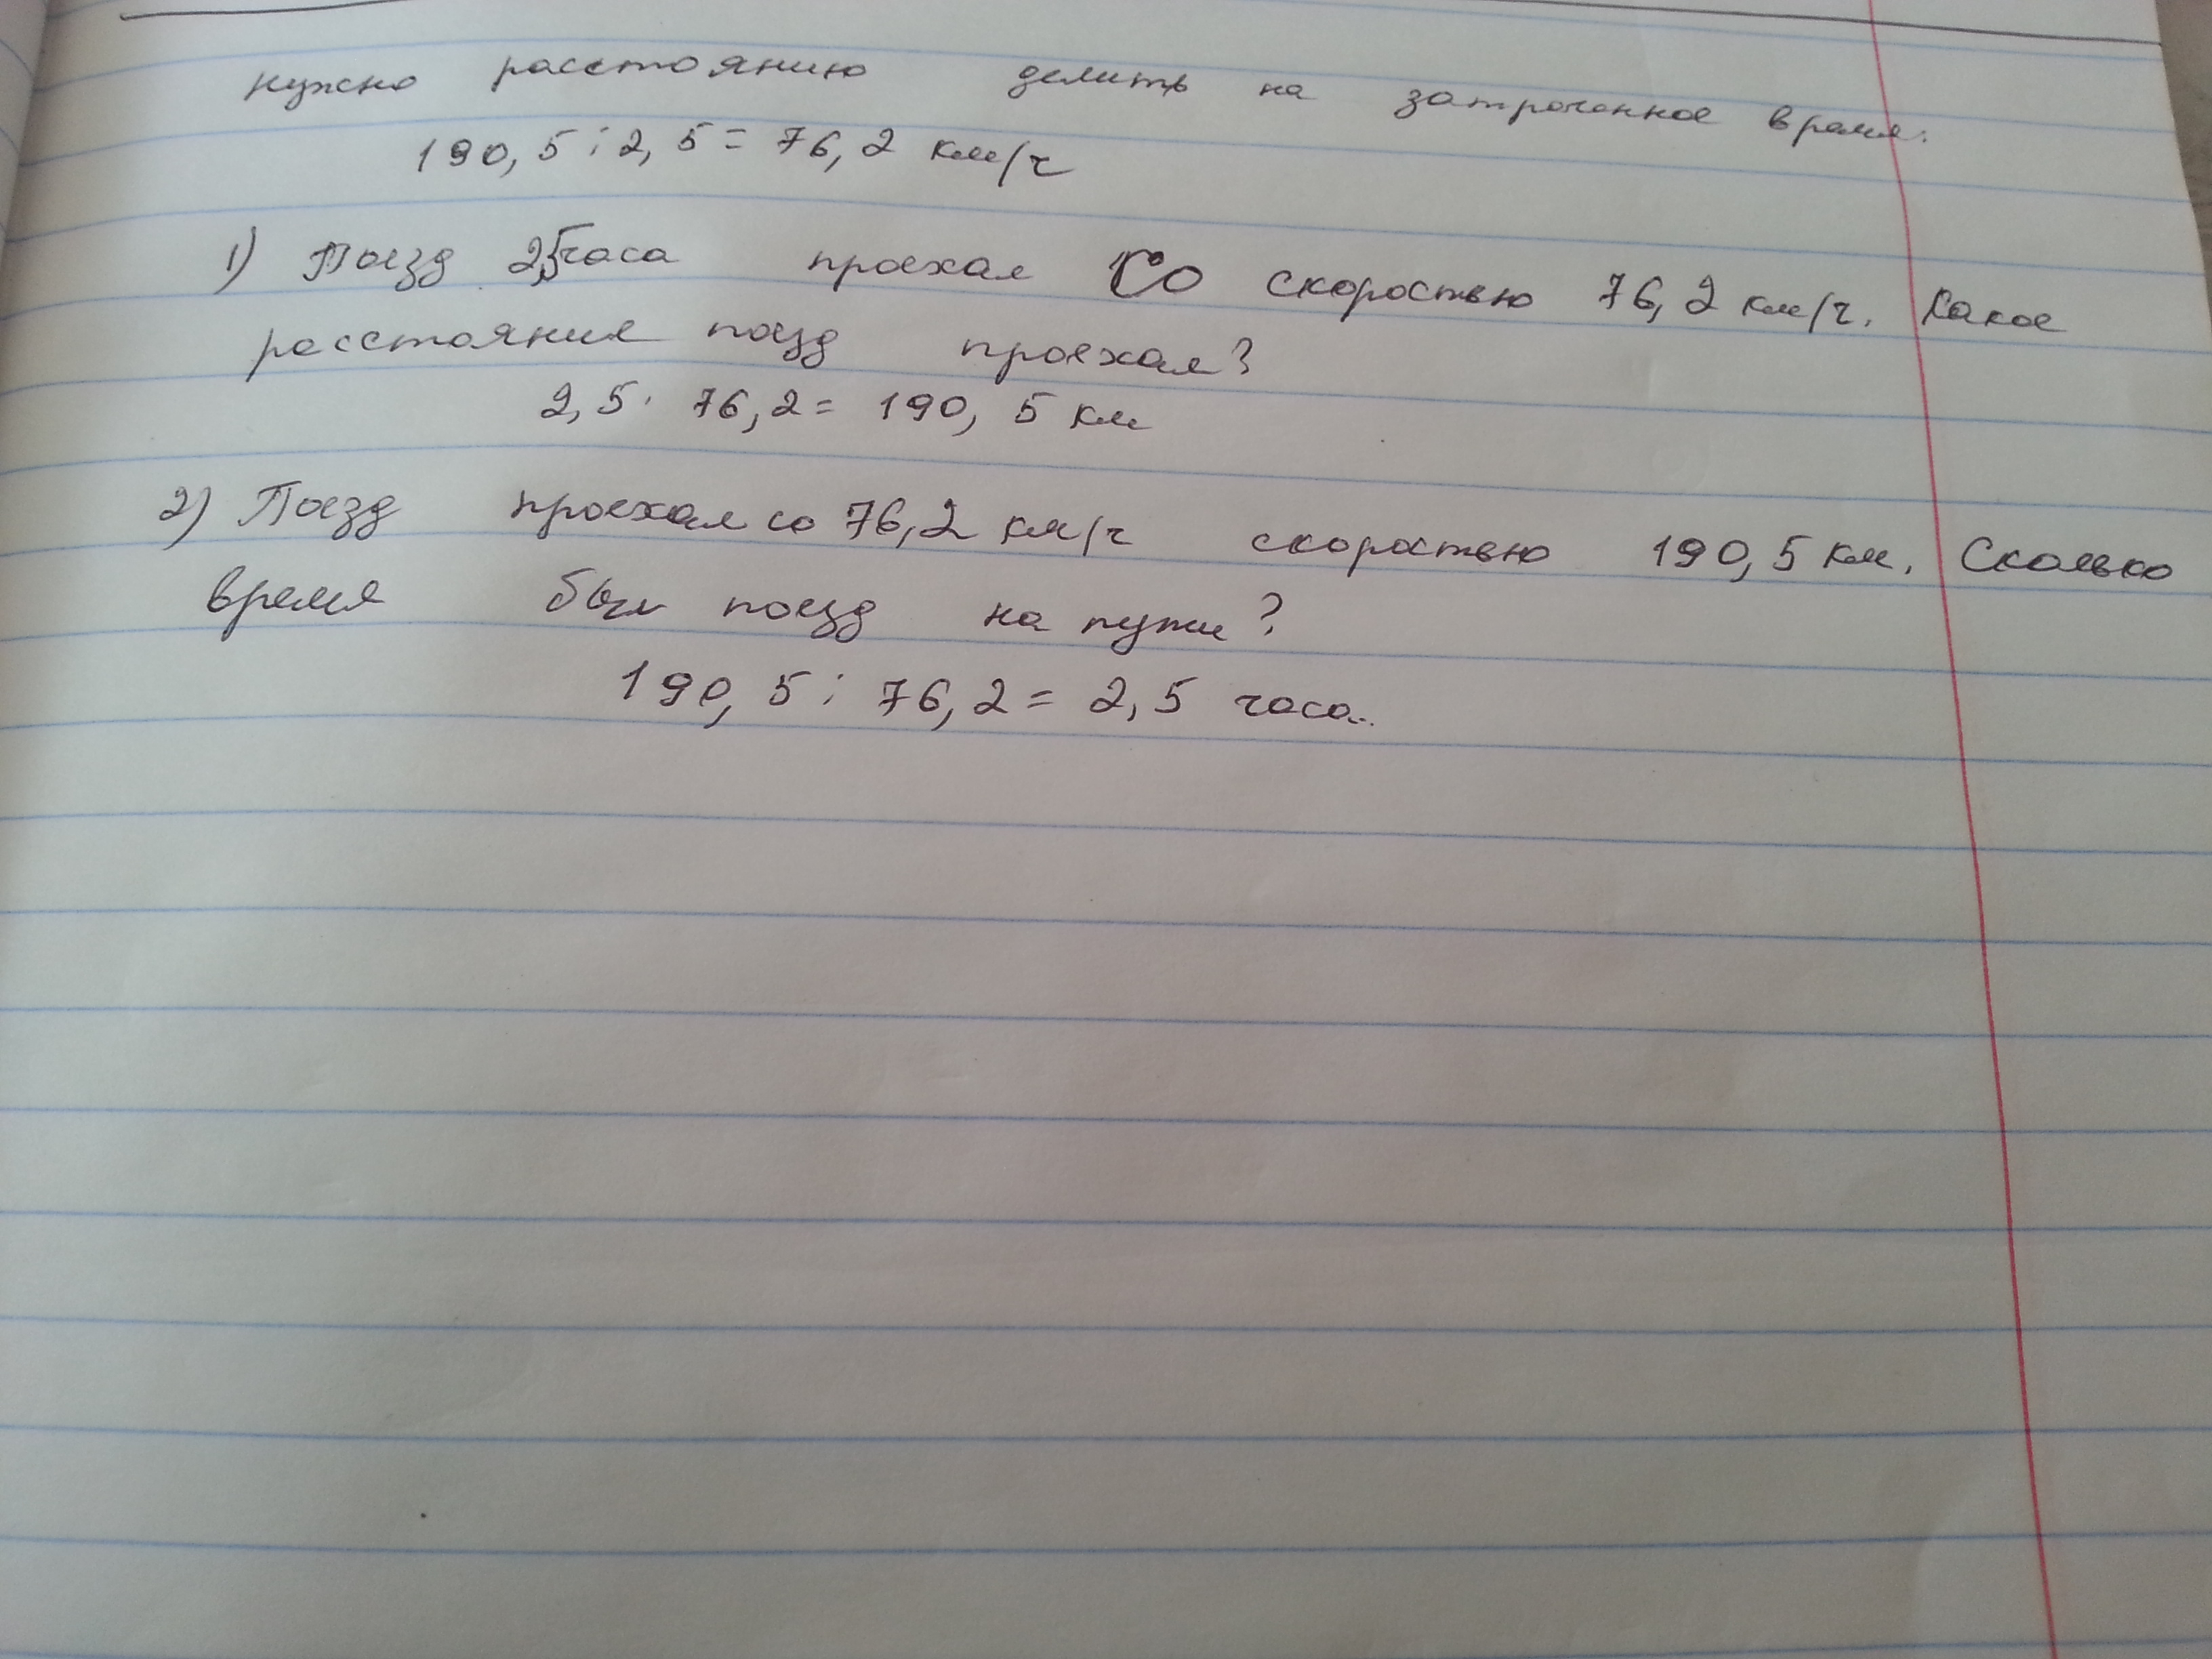 нужно расстоянию делить на затраченное время.
190,5 : 2,5 = 76,2 км/ч
1) Поезд 2,5 часа проехал со скоростью 76,2 км/ч. Какое
расстояние поезд проехал?
2,5 · 76,2 = 190,5 км
2) Поезд проехал со 76,2 км/ч скоростью 190,5 км. Сколько
время был поезд на пути?
190,5 : 76,2 = 2,5 часа..